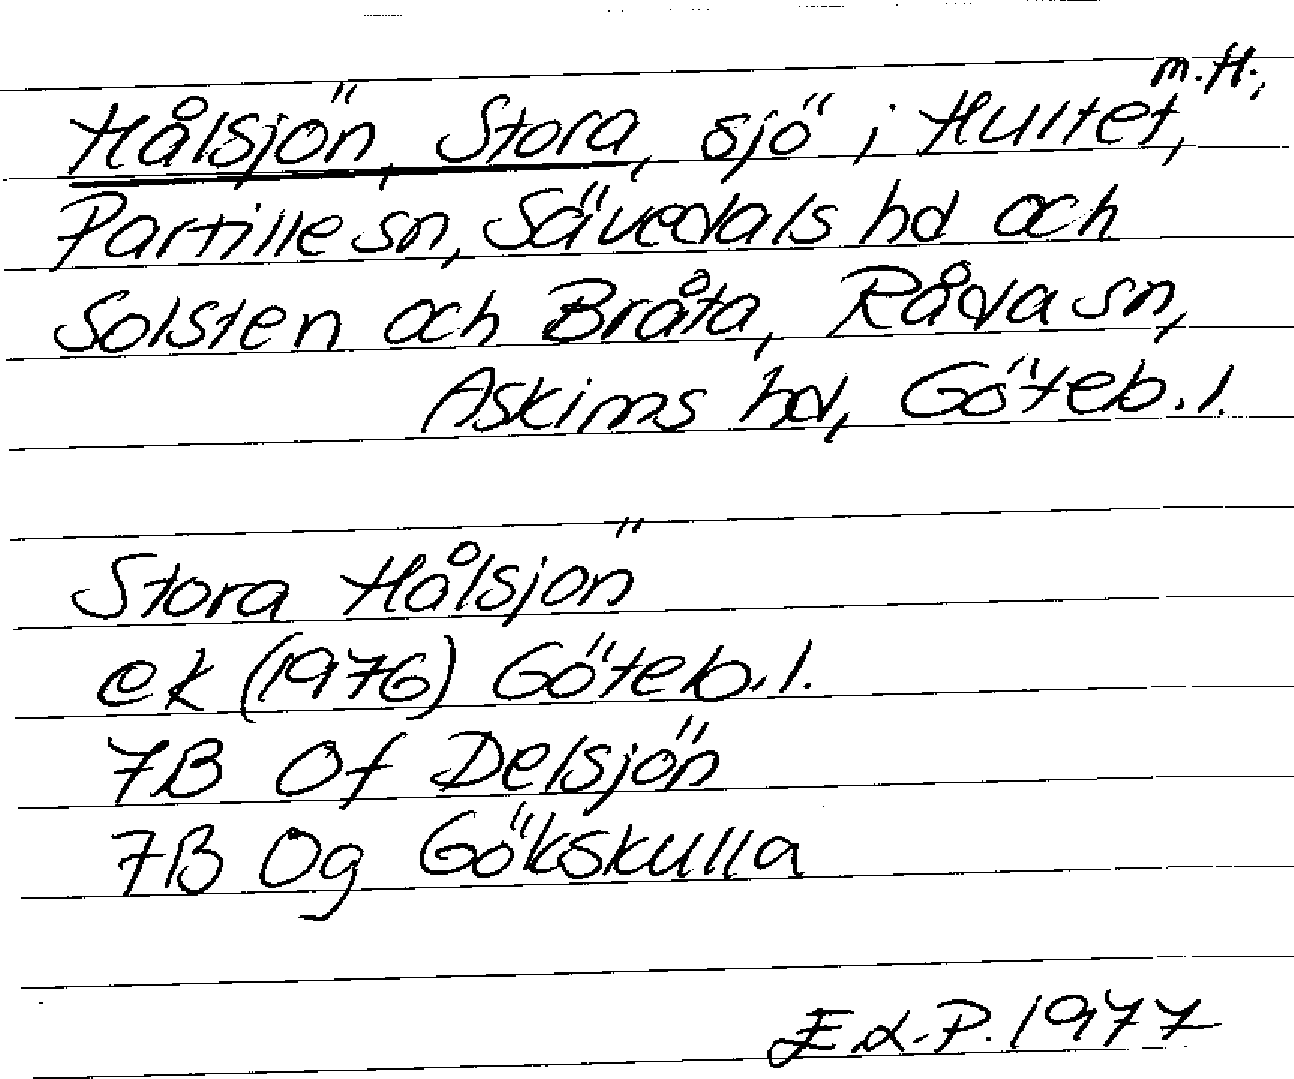 m.fl.,
Hålsjön, Stora, sjö i Hultet,
Partille sn, Sävedals hd och
Solsten och Bråta, Råda sn,
Askims hd, Göteb. l.
Stora Hålsjön
ek (1976) Göteb. l.
7B 0f Delsjön
7B 0g Gökskulla
1977